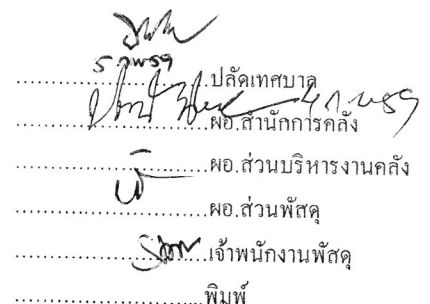 5 ก.พ. 59
....................ปลัดเทศบาล
4 ก.พ. 59
....................ผอ.สำนักการคลัง
....................ผอ.ส่วนบริหารงานคลัง
....................ผอ.ส่วนพัสดุ
....................เจ้าพนักงานพัสดุ
....................พิมพ์